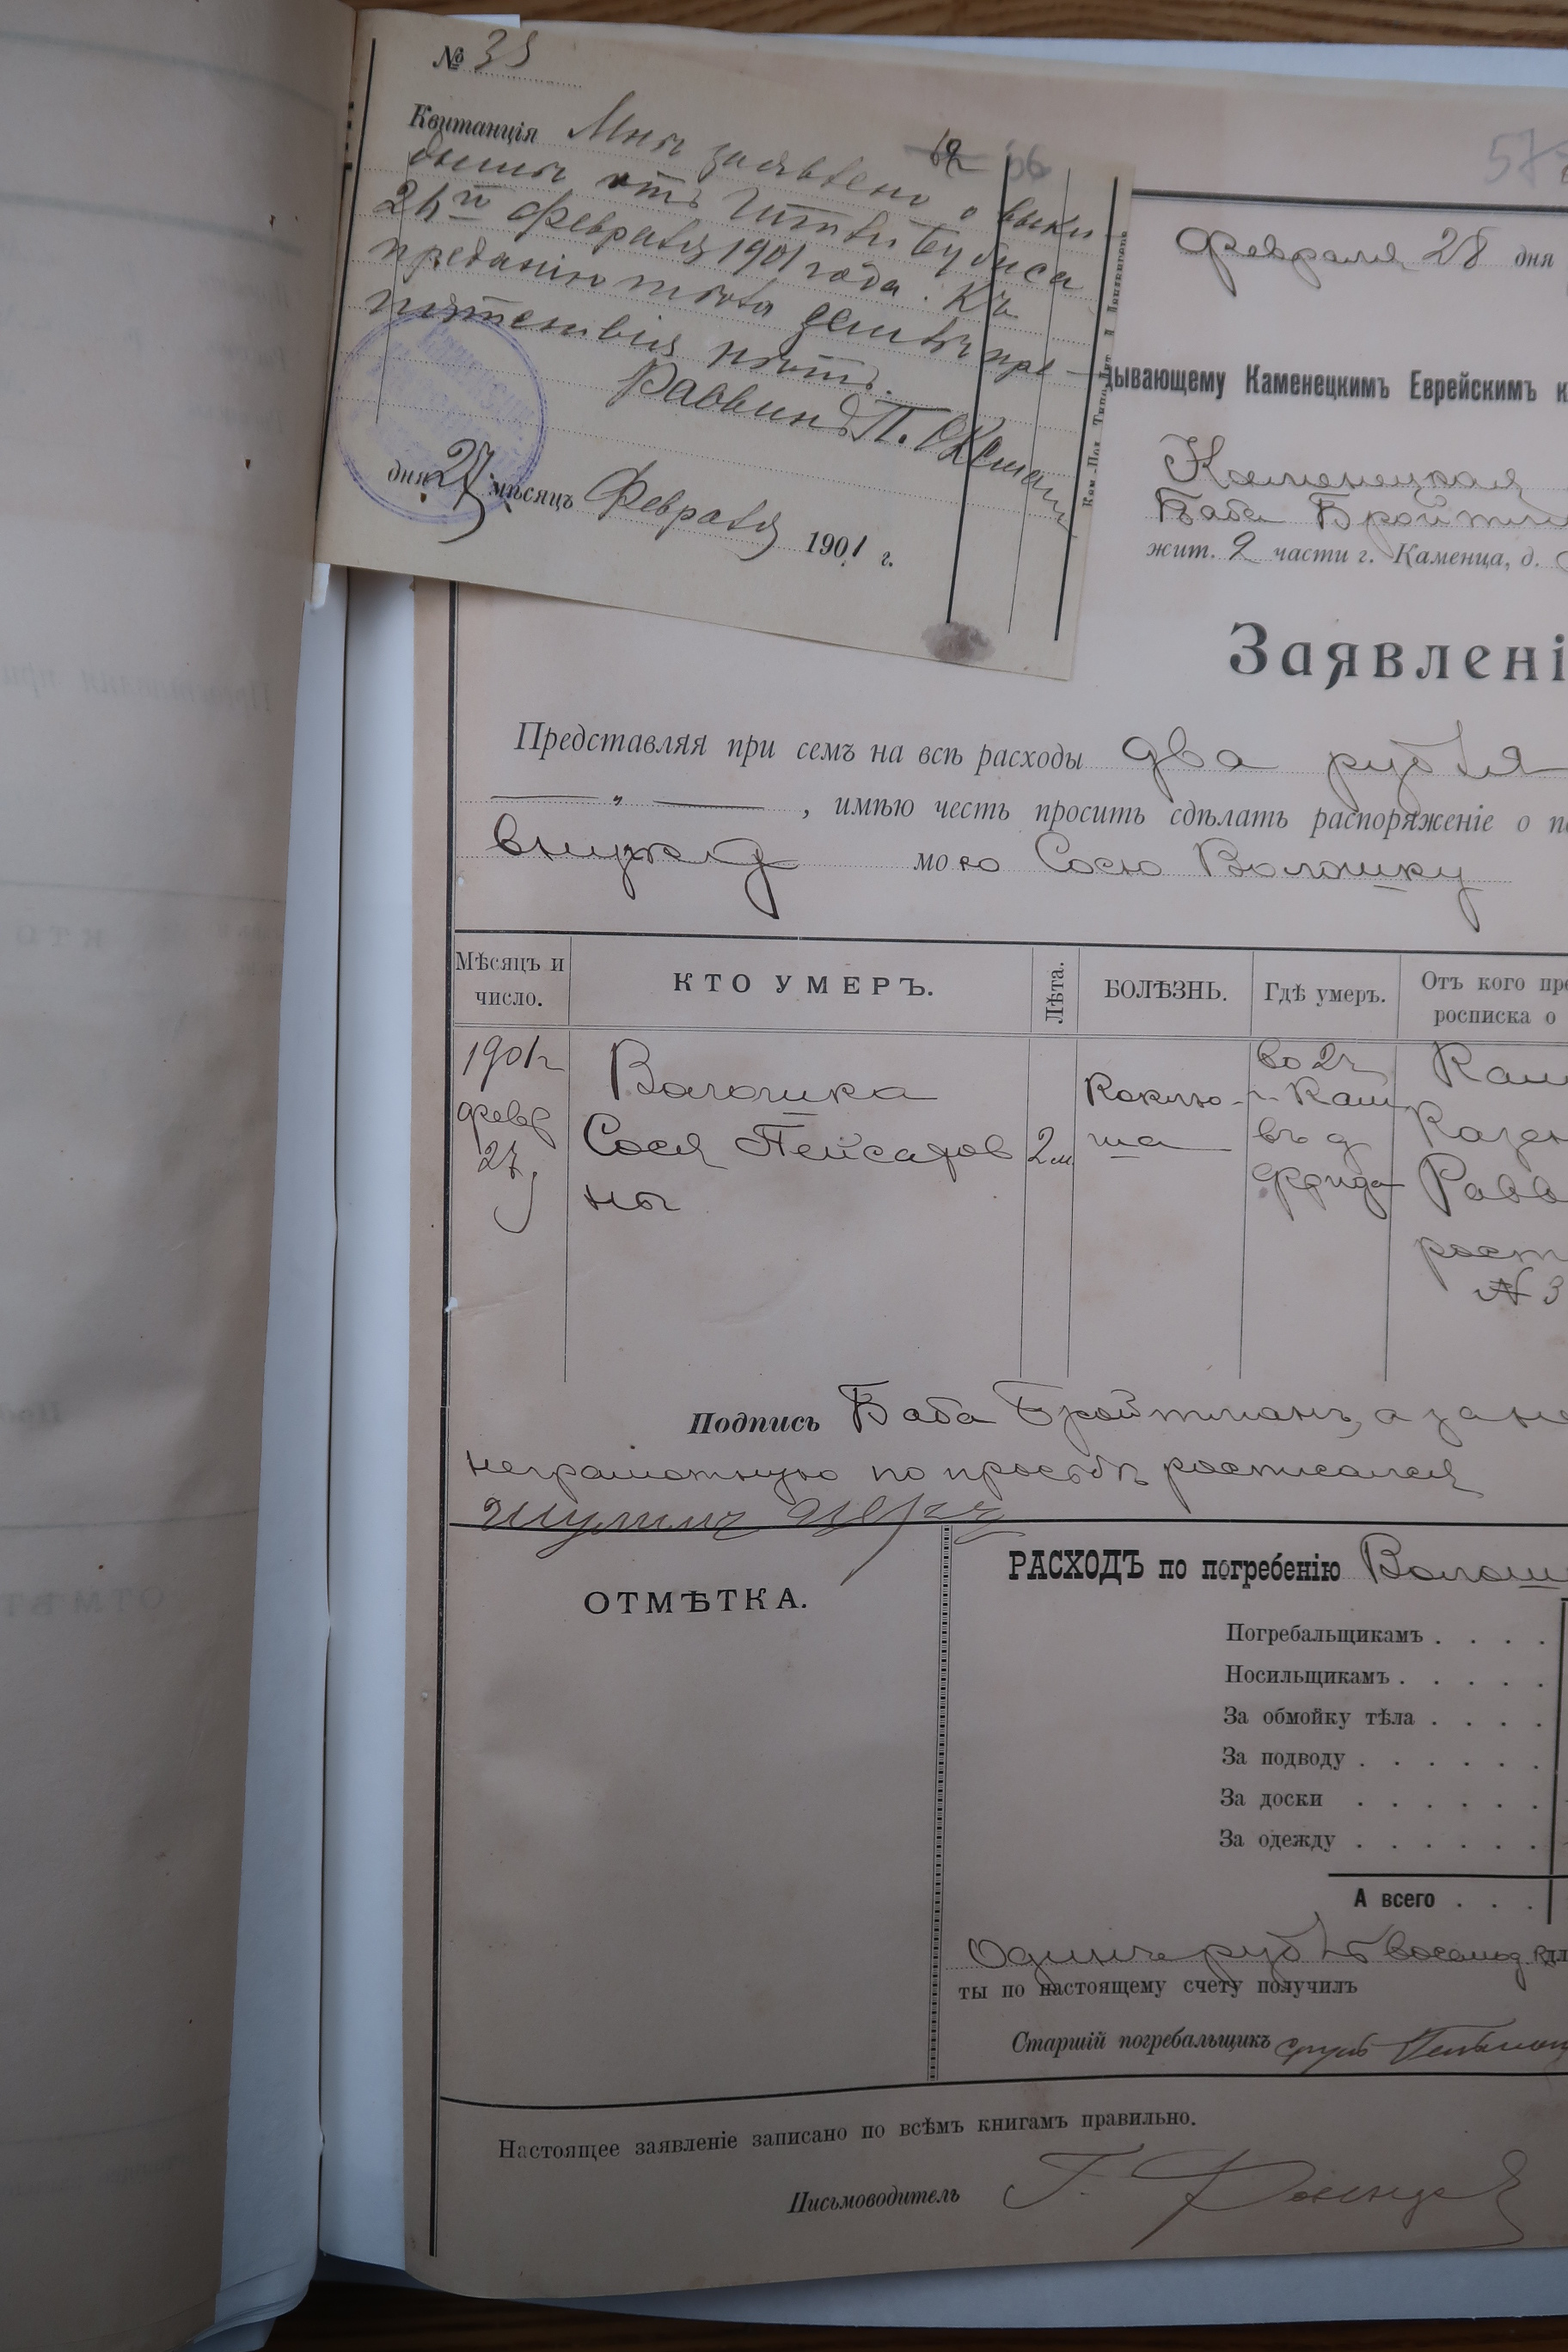 № 35
Квитанція Мнѣ заявлено о выки-
дышѣ отъ Гитли Будиса
26го Февраля 1901 года. Къ
преданію тѣла землѣ пре-
пятствія нѣтъ.
Раввинъ П.
дня 27 мѣсяцъ Февраля 1901 г.
Февраля 28 дня
дывающему Каменецкимъ Еврейскимъ к
Каменецкая
Баба Бройтма
жит. 2 части г. Каменца, д.
Заявлені
Представляя при семъ на всѣ расходы два рубля
, имѣю честь просить сдѣлать распоряженіе о по
внучку мою Сосю Волошку
Мѣсяцъ и число. КТО УМЕРЪ. Лѣта. БОЛѢЗНЬ. Гдѣ умеръ. Отъ кого пре
росписка о
1901 г Волошка во 2 ч Кам
февр Коклю- г. Кам Казен
27 Сося Пейсахов 2 м ша въ д Равв
ны Фрида
росп
№ 3
Подпись Баба Бройтманъ, а за не
неграмотную по просьбѣ росписался
Шулимъ
ОТМѢТКА.
РАСХОДЪ по погребенію Волош
Погребальщикамъ . . . .
Носильщикамъ . . . . .
За обмойку тѣла . . . .
За подводу . . . . . .
За доски . . . . . .
За одежду . . . . . .
А всего . . .
Одинъ рубль восемьд. к
ты по настоящему счету получилъ
Старшій погребальщикъ
Настоящее заявленіе записано по всѣмъ книгамъ правильно.
Письмоводитель Г.